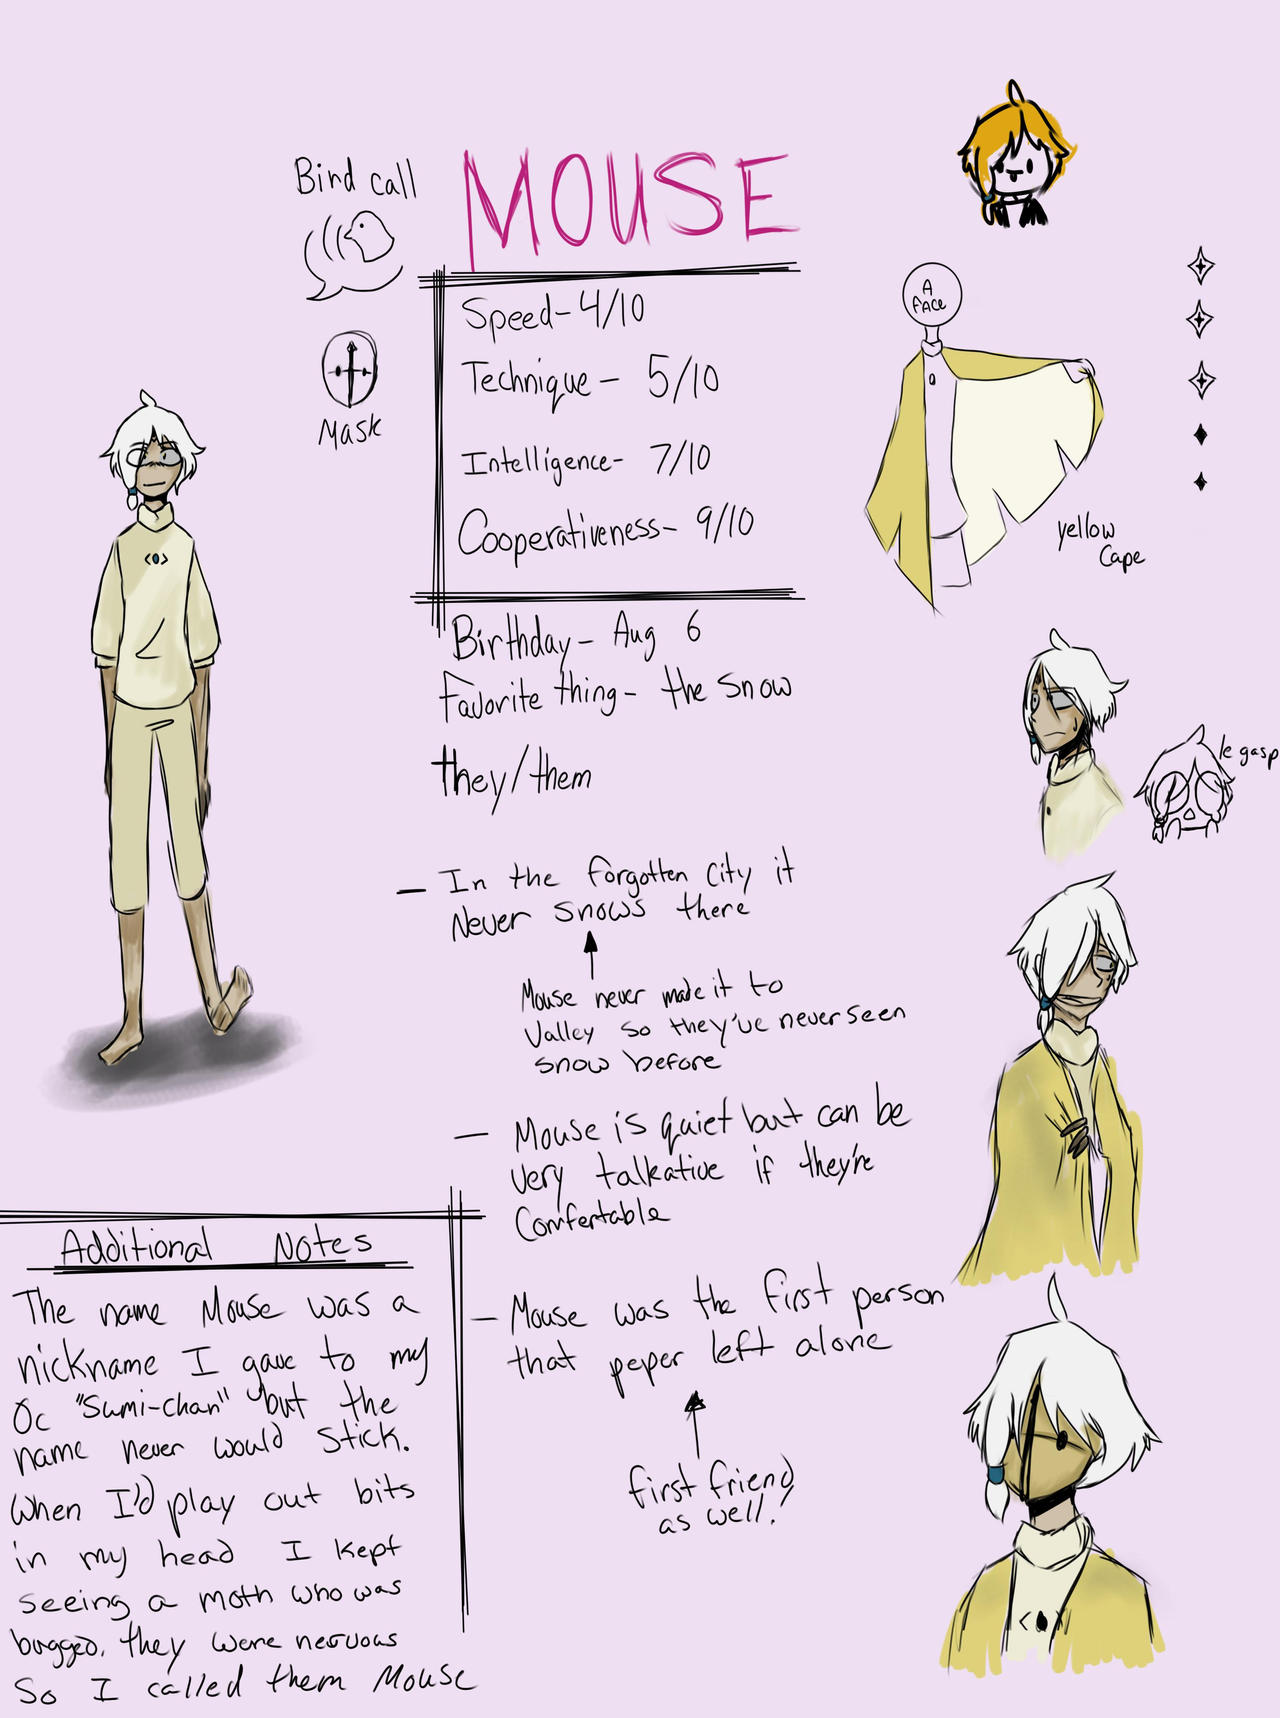 Bird call
MOUSE
Mask
Speed- 4/10
Technique - 5/10
Intelligence- 7/10
Cooperativeness- 9/10
A
FACE
yellow
Cape
Birthday- Aug 6
Favorite thing- the snow
they/them
le gasp
- In the forgotten city it
Never snows there
Mouse never made it to
Valley so they've never seen
snow before
- Mouse is quiet but can be
very talkative if they're
Comfertable
- Mouse was the first person
that peper left alone
first friend
as well!
Additional Notes
The name Mouse was a
nickname I gave to my
Oc "Sumi-chan" but the
name never would stick.
When I'd play out bits
in my head I kept
seeing a moth who was
bugged, they were nervous
So I called them Mouse